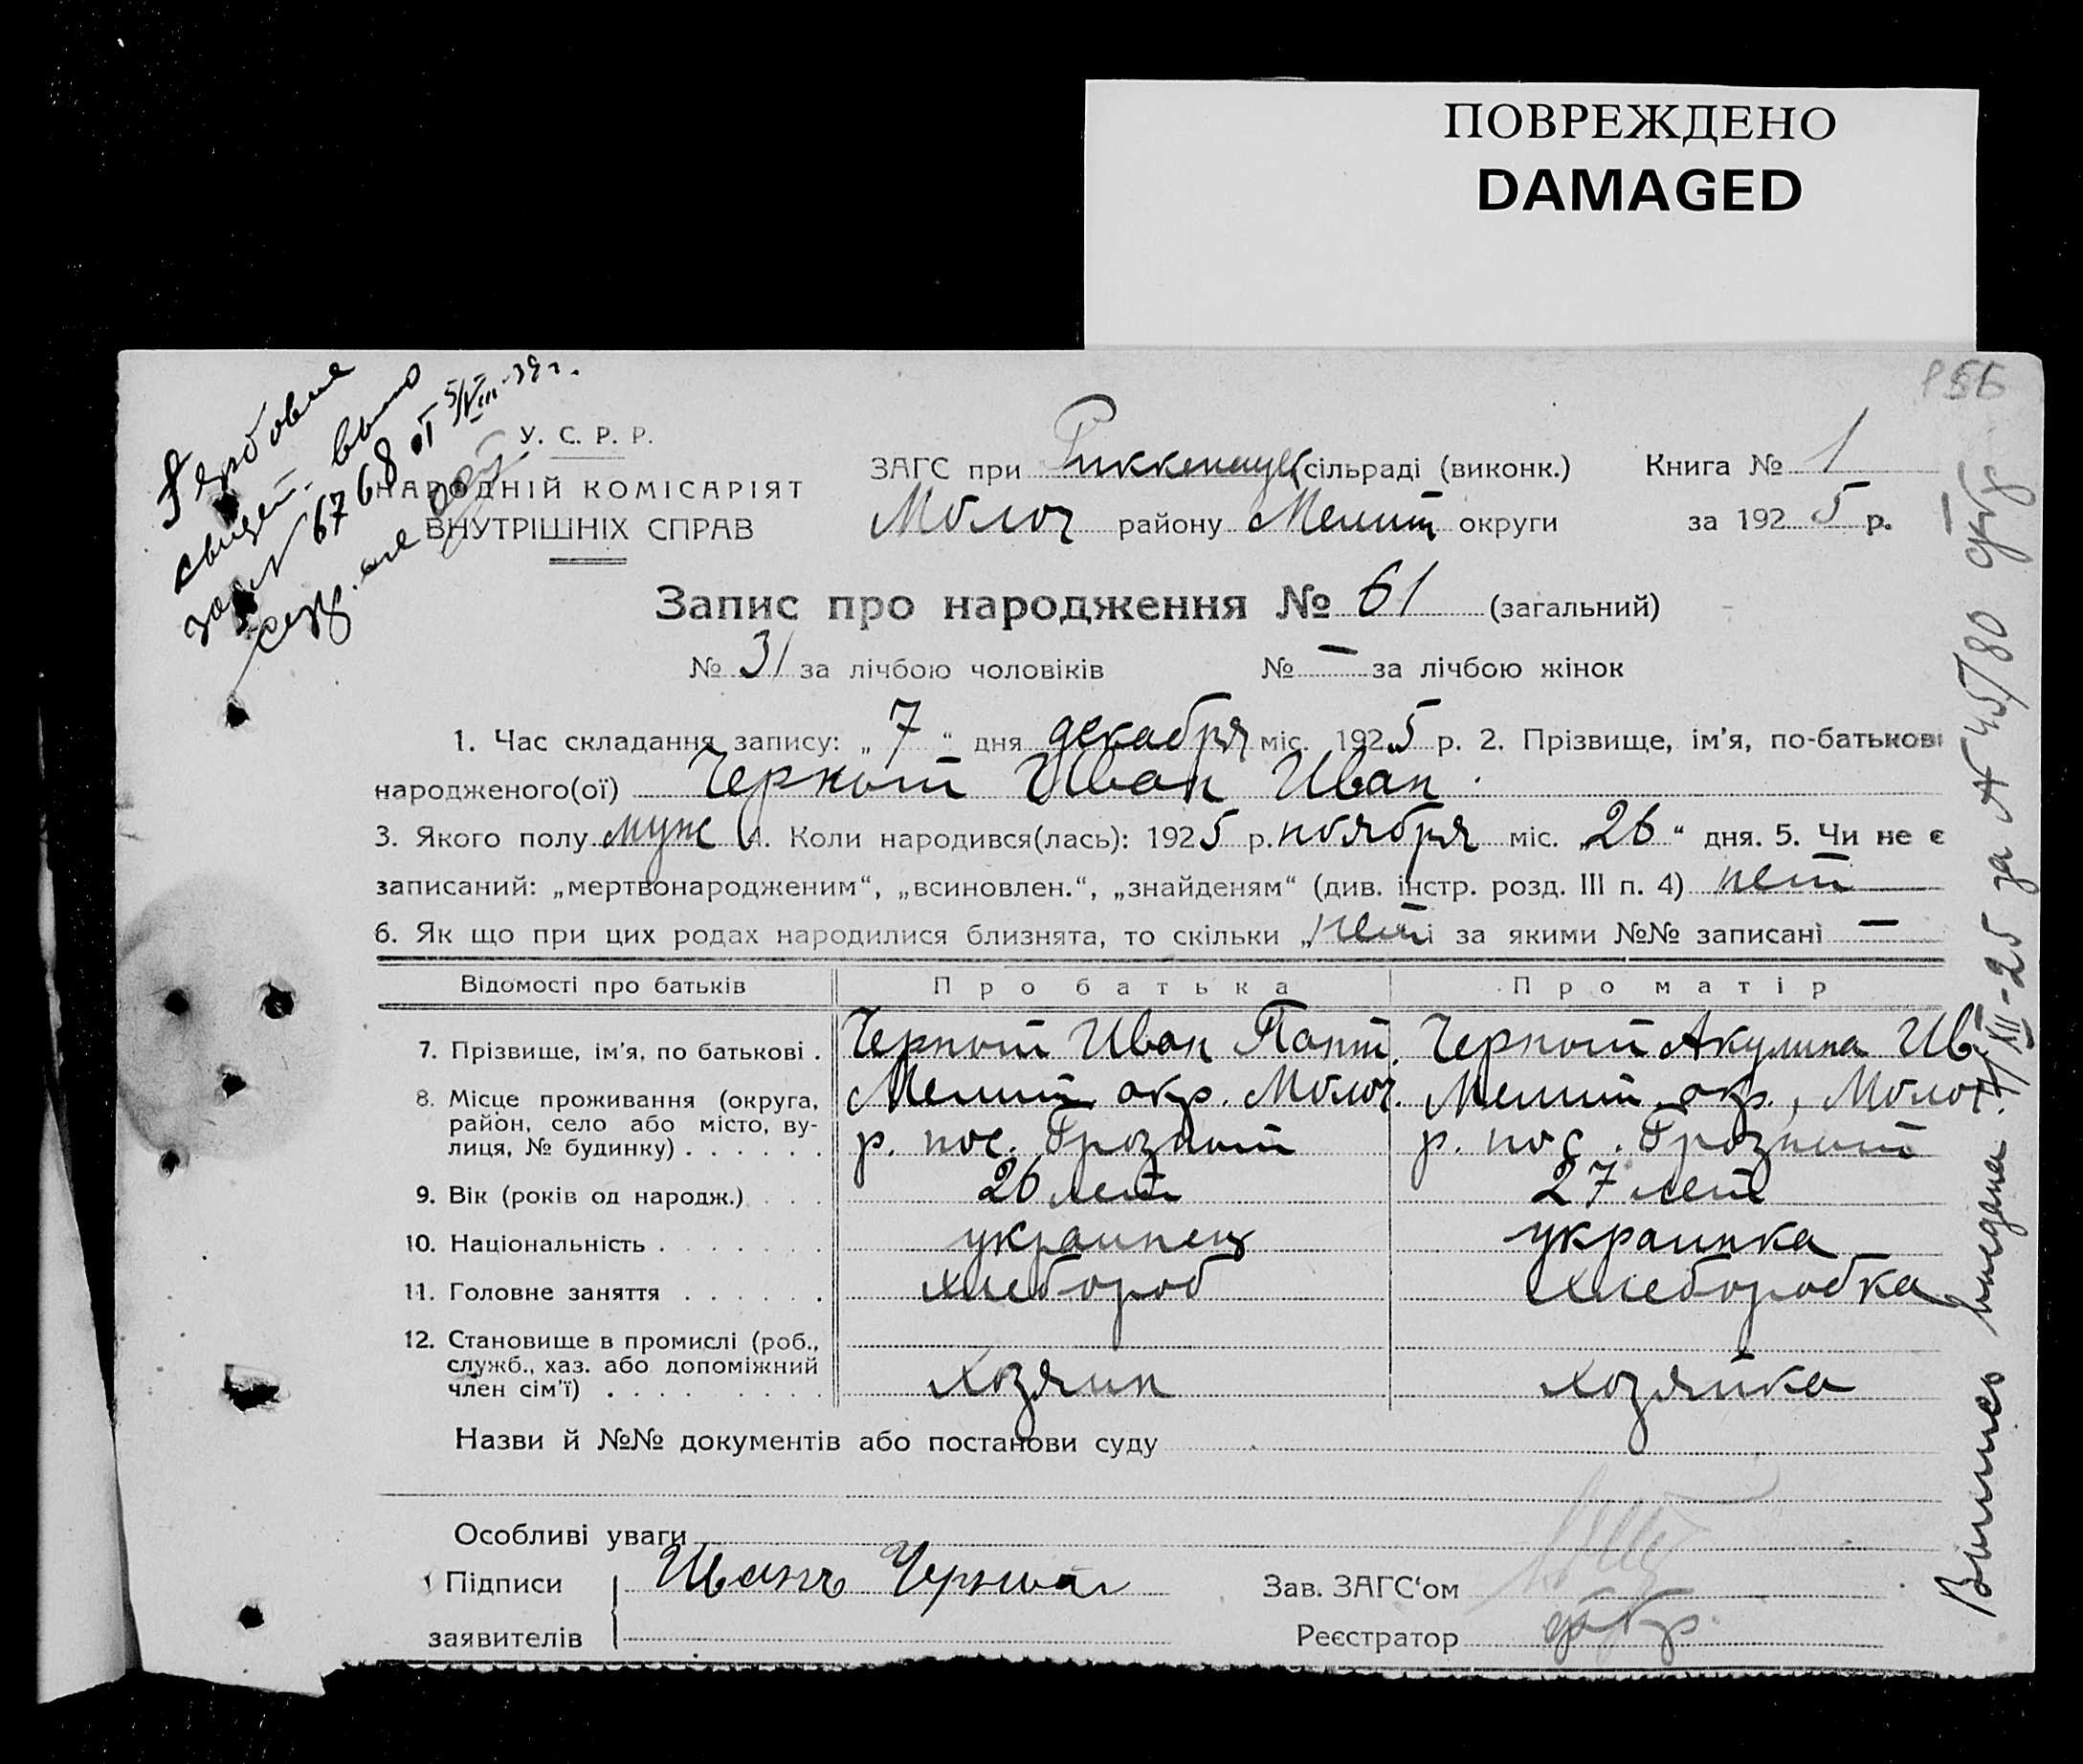 ПОВРЕЖДЕНО
DAMAGED
156
Гербовые
свидет. выдано
за № 6768 от 5/VIII-39 г.
У. С. Р. Р.
НАРОДНІЙ КОМІСАРІЯТ
ВНУТРІШНІХ СПРАВ
ЗАГС при Риккенауск сільраді (виконк.) Книга № 1
Молоч району Мелит округи за 1925 р.
Запис про народження № 61 (загальний)
№ 31 за лічбою чоловіків № — за лічбою жінок
1. Час складання запису: „7“ дня декабря міс. 1925 р. 2. Прізвище, ім'я, по-батькові
народженого(ої) Черный Иван Иван.
3. Якого полу муж 4. Коли народився(лась): 1925 р. ноября міс. „26“ дня. 5. Чи не є
записаний: „мертвонародженим“, „всиновлен.“, „знайденям“ (див. інстр. розд. III п. 4) нет
6. Як що при цих родах народилися близнята, то скільки „нет і за якими №№ записані —
Відомості про батьків Про батька Про матір
7. Прізвище, ім'я, по батькові . Черный Иван Пант. Черный Акулина Ив.
8. Місце проживання (округа, Мелит. окр. Молоч. Мелит. окр., Молоч.
район, село або місто, ву-
лиця, № будинку) . . . . . . р. пос. Грозный р. пос. Грозный
9. Вік (років од народж.) . . . 26 лет 27 лет
10. Національність . . . . . . . украинец украинка
11. Головне заняття . . . . . . хлебороб хлеборобка
12. Становище в промислі (роб.,
служб., хаз. або допоміжний
член сім'ї) . . . . . . . . . хозяин хозяйка
Назви й №№ документів або постанови суду
Особливі уваги
Підписи Иванъ Черный Зав. ЗАГС'ом
заявителів Реєстратор
Выпись выдана 7/XII-25 за № 45780